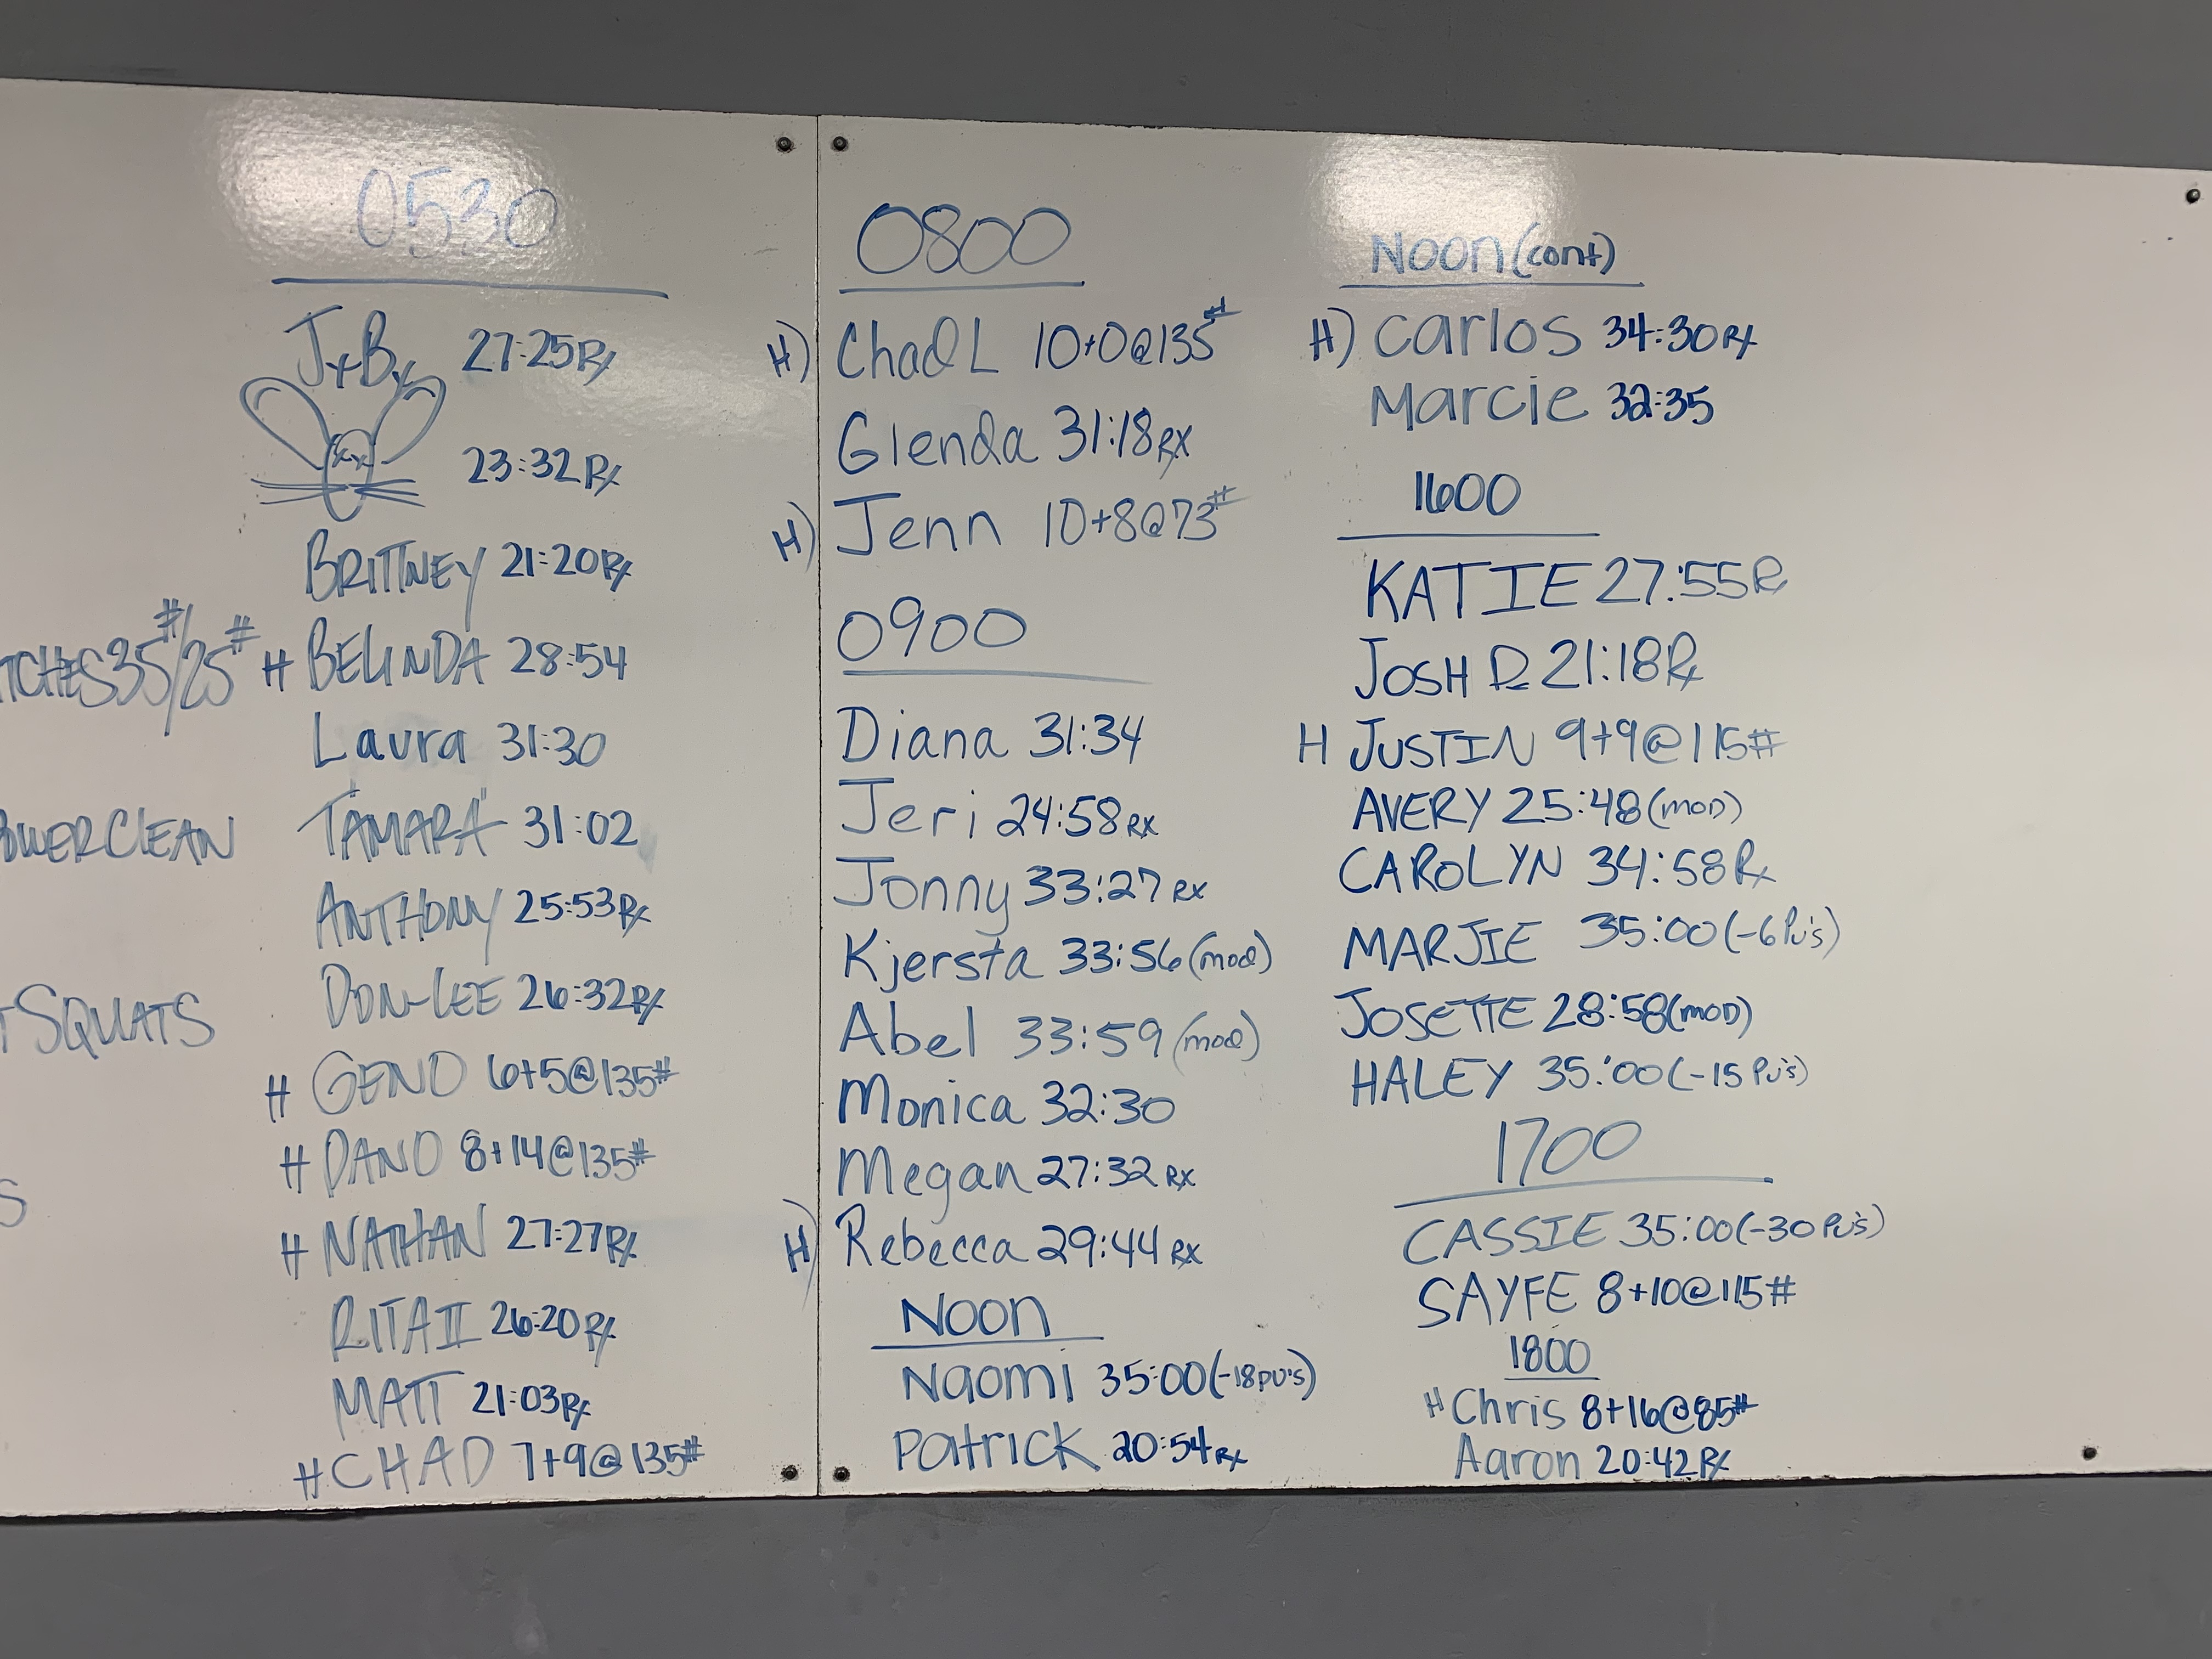 TCHES 35#/25#
OWERCLEAN
T SQUATS
S
0530
JxBx 27:25Rx
23:32Rx
BRITTNEY 21:20Rx
H BELINDA 28:54
Laura 31:30
TAMARA 31:02
ANTHONY 25:53Rx
DON-LEE 26:32Rx
H GENO 6+5@135#
H DANO 8+14@135#
H NATHAN 27:27Rx
RITA II 26:20Rx
MATT 21:03Rx
H CHAD 7+9@135#
0800
H) Chad L 10+0@135#
Glenda 31:18RX
H) Jenn 10+8@73#
0900
Diana 31:34
Jeri 24:58RX
Jonny 33:27 RX
Kjersta 33:56(mod)
Abel 33:59(mod)
Monica 32:30
Megan 27:32 RX
H) Rebecca 29:44 RX
Noon
Naomi 35:00(-18pu's)
Patrick 20:54Rx
Noon(cont)
H) Carlos 34:30Rx
Marcie 32:35
1600
KATIE 27:55R
JOSH D. 21:18Rx
H JUSTIN 9+9@115#
AVERY 25:48(MOD)
CAROLYN 34:58Rx
MARJIE 35:00(-6 Pu's)
JOSETTE 28:58(MOD)
HALEY 35:00(-15 Pu's)
1700
CASSIE 35:00(-30 Pu's)
SAYFE 8+10@115#
1800
H Chris 8+16@85#
Aaron 20:42Rx